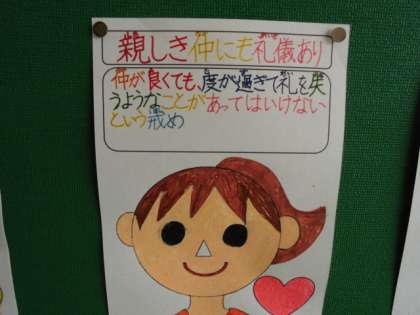 親しき仲にも礼儀あり
仲が良くても、度が過ぎて礼を失
うようなことがあってはいけない
という戒め